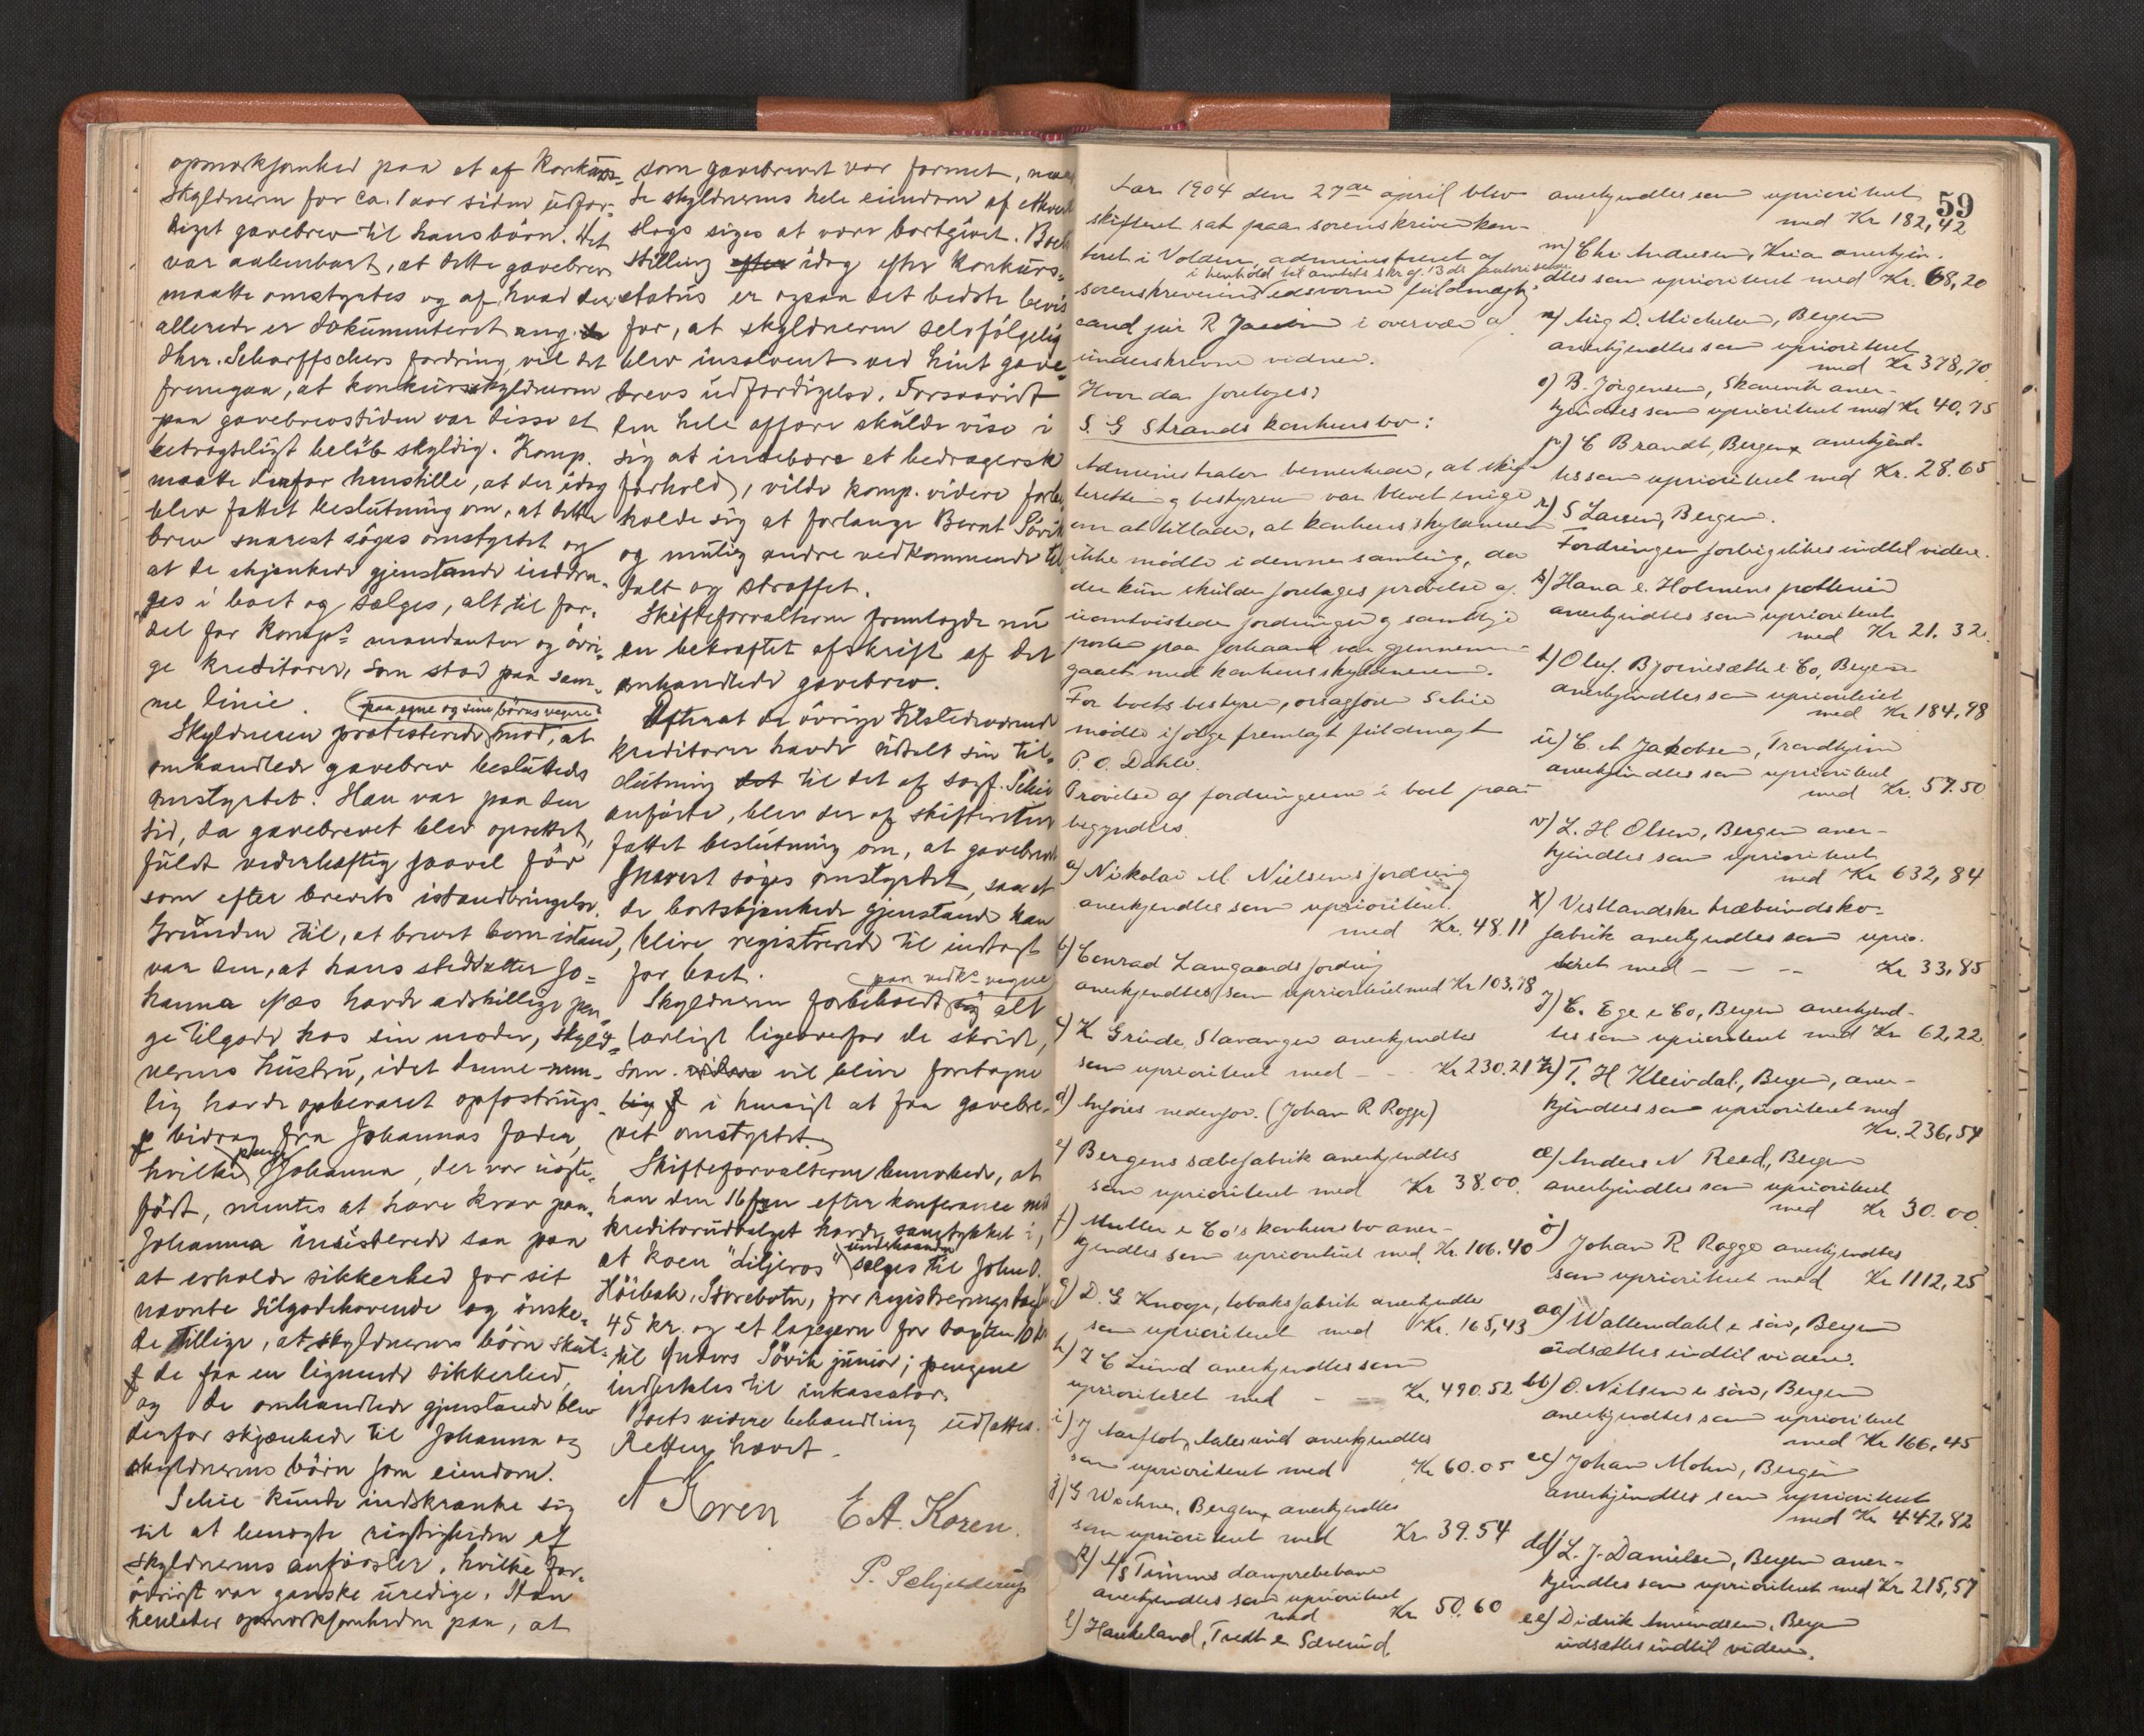 opmærksomhed paa et af konkurs-
skyldneren for ca. 1 aar siden udfær-
diget gavebrev til hans börn. Det
var aabenbart, at dette gavebrev
maatte omstyrtes og af hvad der
allerede er dokumenteret ang.
dhrr. Scharffschers fordring, vil det
fremgaa, at konkursskyldneren
paa gavebrevstiden var disse et
betragteligt belöb skyldig. Komp.
maatte derfor henstille, at der idag
blev fattet beslutning om, at dette
brev snarest söges omstyrtet og
at de skjænkede gjenstande inddra-
ges i boet og sælges, alt til for-
del for komps mandanter og övri-
ge kreditorer, som stod paa sam-
me linie.
paa egne og sine börns vegne
Skyldneren protesterede mod, at
omhandlede gavebrev besluttedes
omstyrtet. Han var paa den
tid, da gavebrevet blev oprettet,
fuldt vederhæftig saavel för
som efter brevets istandbringelse.
Grunden til, at brevet kom istand,
var den, at hans steddatter Jo-
hanna Næs havde adskillige pen-
ge tilgode hos sin moder, skyld-
nerens hustru, idet denne nem-
lig havde opbevaret opfostrings-
bidrag fra Johannas fader,
hvilke penge Johanna, der var uægte-
födt, mentes at have krav paa.
Johanna insisterede saa paa
at erholde sikkerhed for sit
nævnte tilgodehavende og önske-
de tillige, at skyldnerens börn skul-
de faa en lignende sikkerhed,
og de omhandlede gjenstande blev
derfor skjænkede til Johanna og
skyldnerens börn som eiendom.
Schie kunde indskrænke sig
til at benegte rigtigheden af
skyldnerens anförsler, hvilke for-
övrigt var ganske uredige. Han
henleder opmærksomheden paa, at
som gavebrevet var formet, maa
de skyldnerens hele eiendom af ethvert
slags siges at være bortgivet. Boets
stilling idag efter konkurs-
status er ogsaa det bedste bevis
for, at skyldneren selvfölgelig
blev insolvent ved hint gave-
brevs udfærdigelse. Forsaavidt
den hele affære skulde vise i
sig at indebære et bedragersk
forhold, vilde komp. videre forbe-
holde sig at forlange Bernt Sövik
og mulig andre vedkommende til-
talt og straffet.
Skifteforvalteren fremlagde nu
en bekræftet afskrift af det
omhandlede gavebrev.
Efterat de övrige tilstedeværende
kreditorer havde uddelt sin til-
slutning til det af sagf. Schie
anförte, blev der af skifteretten
fattet beslutning om, at gavebrevet
snarest söges omstyrtet, saa at
de bortskjænkede gjenstande kan
blive registrerede til indtægt
for boet.
paa vedk. vegne
Skyldneren forbeholdt sig alt
lovligt ligeoverfor de skridt,
som vil blive foretagne
i hensigt at faa gavebre-
vet omstyrtet.
Skifteforvalteren bemærkede, at
han den 16 efter konferance med
kreditorudvalget havde samtykket i,
at koen "Liljeros" underhaanden sælges til John O.
Höibak, Storebotn, for registreringstaxten
45 kr. og et lagegarn for taxten 10 kr
til Anders Sövik junior; pengene
indbetales til inkassator.
Boets videre behandling udsattes.
Retten hævet.
A Koren
E A. Koren.
P. Schjelderup
59
Aar 1904 den 27de april blev
skifteret sat paa sorenskriverkon-
toret i Volden, administreret af
i henhold til amtets skr. af 13 ds autoriserede
sorenskriverens edsvorne fuldmægtig,
cand jur R Jansen i overvær af
underskrevne vidner.
Hvor da foretoges:
S. G Strands konkursbo:
Administrator bemerkede, at skif-
teretten og bestyreren var blevet enige
om at tillade, at konkursskyldneren
ikke mödte i denne samling, da
der kun skulde foretages prövelse af
uomtvistede fordringer og samtlige
poster paa forhaand var gjennem-
gaaet med konkursskyldneren.
For boets bestyrer, orsagförer Schie
mödte ifölge fremlagt fuldmagt
P. O. Dahle.
Prövelse af fordringerne i boet paa-
begyndtes.
a) Nikolai M. Nielsens fordring
anerkjendtes som uprioriteret
med Kr. 48.11
b) Conrad Langaards fordring
anerkjendtes som uprioriteret med Kr 103.78
c) K Grude, Stavanger anerkjendtes
som uprioriteret med - - Kr 230.21
d) Anföres nedenfor. (Johan R Rogge)
e) Bergens sæbefabrik anerkjendtes
som uprioriteret med Kr 38.00.
f) Muller & Co's konkursbo aner-
kjendtes som uprioriteret med Kr. 106.40
g) D. G Knoop, tobaksfabrik anerkjendtes
som uprioriteret med Kr. 165,43
h) I C Lund anerkjendtes som
uprioriteret med - Kr. 490.52
i) J Aarflot, Aalesund anerkjendtes
som uprioriteret med Kr 60.05
j) G Wachner, Bergen, anerkjendtes
som uprioriteret med Kr. 39.54
k) A/s Trimms damprebebane
anerkjendtes som uprioriteret
med Kr 50.60
l) Haukeland, Tvedt & Sæverud
anerkjendtes som uprioriteret
med Kr 182,42
m) Chr. Andersen, Kria anerkjen-
dtes som uprioriteret med Kr. 68,20
n) Aug D. Michelsen, Bergen
anerkjendtes som uprioriteret
med Kr 378,70
o) B. Jörgensen, Skanevik aner-
kjendtes som uprioriteret med Kr 40,75
p) C Brandt, Bergen anerkjend-
tes som uprioriteret med Kr. 28.65
r) S Larsen, Bergen.
Fordringen forbigikkes indtil videre.
s) Hana & Holmens potteri
anerkjendtes som uprioriteret
med Kr 21.32.
t) Oluf Bjornesætte & Co, Bergen
anerkjendtes som uprioriteret
med Kr 184,98
u) C. A Jakobsen, Trondhjem
anerkjendtes som uprioriteret
med Kr. 57.50
v) L. H Olsen, Bergen aner-
kjendtes som uprioriteret
med Kr 632,84
x) Vestlandske træbundsko-
fabrik anerkjendtes som uprio-
riteret med - - -- Kr 33,85
y) C. Ege & Co, Bergen anerkjend-
tes som uprioriteret med Kr 62,22.
z) T. H Kleivdal, Bergen, aner-
kjendtes som uprioriteret med
Kr. 236,54
æ) Anders N Reed, Bergen
anerkjendtes som uprioriteret
med Kr 30.00.
ö) Johan R Rogge anerkjendtes
som uprioriteret med Kr 1112,25
aa) Wallendahl & sön, Bergen
udsættes indtil videre.
bb) O. Nilsen & sön, Bergen
anerkjendtes som uprioriteret
med Kr 166,45
cc) Johan Mohn, Bergen
anerkjendtes som uprioriteret
med Kr 442,82
dd) L. J. Danielsen, Bergen aner-
kjendtes som uprioriteret med Kr 215,57
ee) Didrik Amundsen, Bergen
udsættes indtil videre.